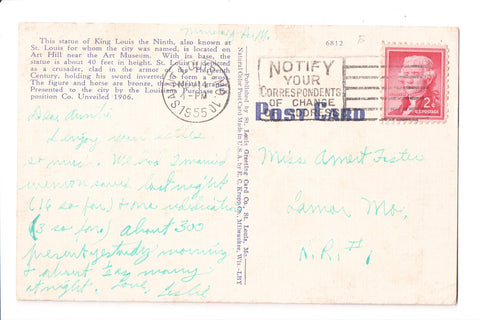 This statue of King Louis the Ninth, also known at
St. Louis for whom the city was named, is located on
Art Hill near the Art Museum. With its base, the
statue is about 40 feet in height. St. Louis is depicted
as a crusader, clad in the armor of the Thirteenth
Century, holding his sword inverted to form a cross.
The figure and horse are bronze,
Presented to the city by the Louisiana Purchase Ex-
position Co. Unveiled 1906.
6812
NOTIFY
YOUR
CORRESPONDENTS
OF CHANGE
OF ADDRESS
NOV 14
PM
1955
POST CARD
2¢
U.S. POSTAGE
Published by St. Louis Greeting Card Co., St. Louis, Mo.
Made in U.S.A. by E. C. Kropp Co., Milwaukee, Wis.
Dear
I enjoy your
so much. We had 1
saved last night
(16 so far) & one
(3 so far) about 300
present yesterday morning
& about
at night. Love,
Leslie
Miss Foster
Lamar Mo.
R.R. #1